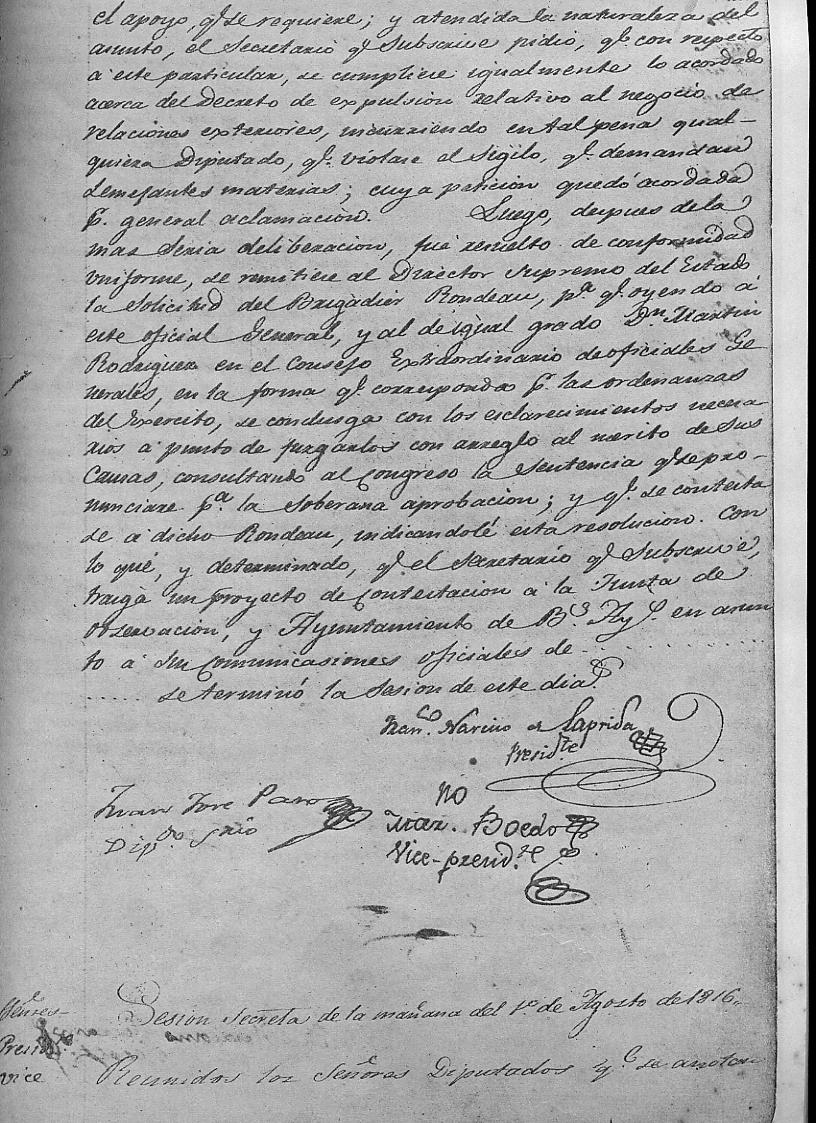 el apoyo, q.e se requiere; y atendida la naturaleza del
asunto, el Secretario q.e Subscrive pidio, q.e con respecto
a este particular, se cumpliese igualmente lo acordado
acerca del Decreto de expulsion relativo al negocio de
relaciones exteriores, incurriendo en tal pena qual-
quiera Diputado, q.e violase el Sigilo, q.e demandan
semejantes materias; cuya peticion quedó acordada
p.r general aclamacion. Luego, despues de la
mas seria deliberacion, fué resuelto de conformidad
uniforme, se remitiese al Director Supremo del Estado
la Solicitud del Brigadier Rondeau, p.a q.e oyendo á
este oficial General, y al de igual grado D.n Martin
Rodriguez en el Consejo Extraordinario de oficiales Ge-
nerales, en la forma q.e corresponda p.r las ordenanzas
del Exercito, se conclusga con los esclarecimientos necesa-
rios á punto de juzgarlos con arreglo al merito de sus
Causas, consultando al Congreso la Sentencia q.e se pro-
nunciare p.a la Soberana aprobacion; y q.e se contesta
se a dicho Rondeau, indicandole esta resolucion. Con
lo qué, y determinado, q.e el Secretario q.e Subscrive,
traiga un proyecto de Contestacion á la Junta de
Observacion, y Ayuntamiento de B.s Ay.s en asun
to á sus comunicasiones oficiales de . . . . . . . . . .
. . . . . se terminó la Sesion de este dia.
Fran.co Narciso de Laprida
Presid.te
Juan José Paso
Dip.do Srio
no
Mar. Boedo
Vice-presid.te
Sesion Secreta de la mañana del 1.o de Agosto de 1816.
Señres
Presid.
Vice
Reunidos los Señores Diputados q.e se anotan